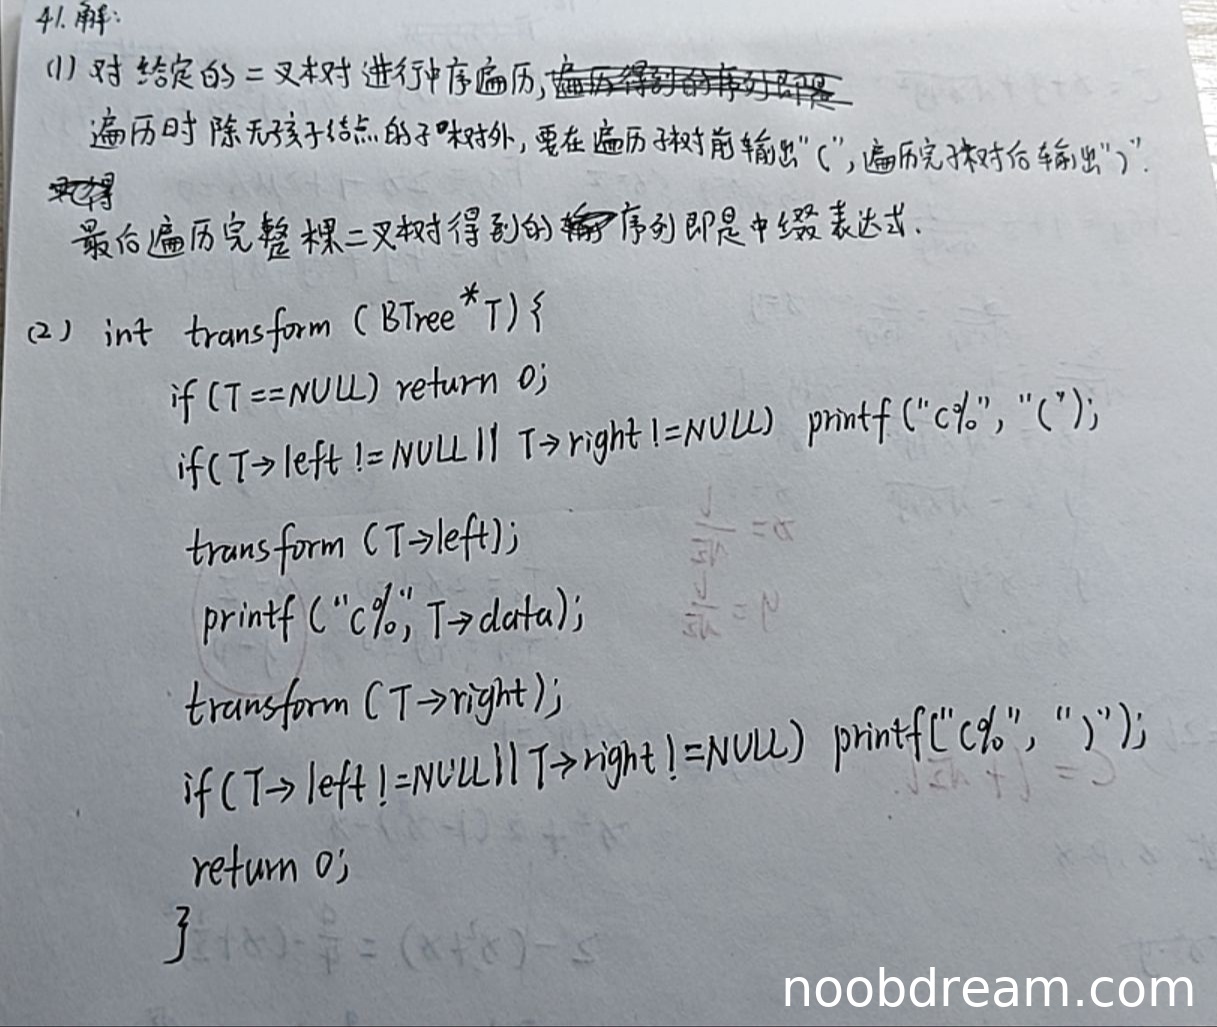 41.解:
(1) 对给定的二叉树进行中序遍历,遍历得到的序列即是
遍历时除无孩子结点的子树外,要在遍历子树前输出"(",遍历完子树后输出")".
最后遍历完整棵二叉树得到的序列即是中缀表达式.
(2) int transform (BTree *T) {
if (T==NULL) return 0;
if (T→left != NULL || T→right != NULL) printf ("c%", "(");
transform (T→left);
printf ("c%", T→data);
transform (T→right);
if (T→left != NULL || T→right != NULL) printf("c%", ")");
return 0;
}
noobdream.com